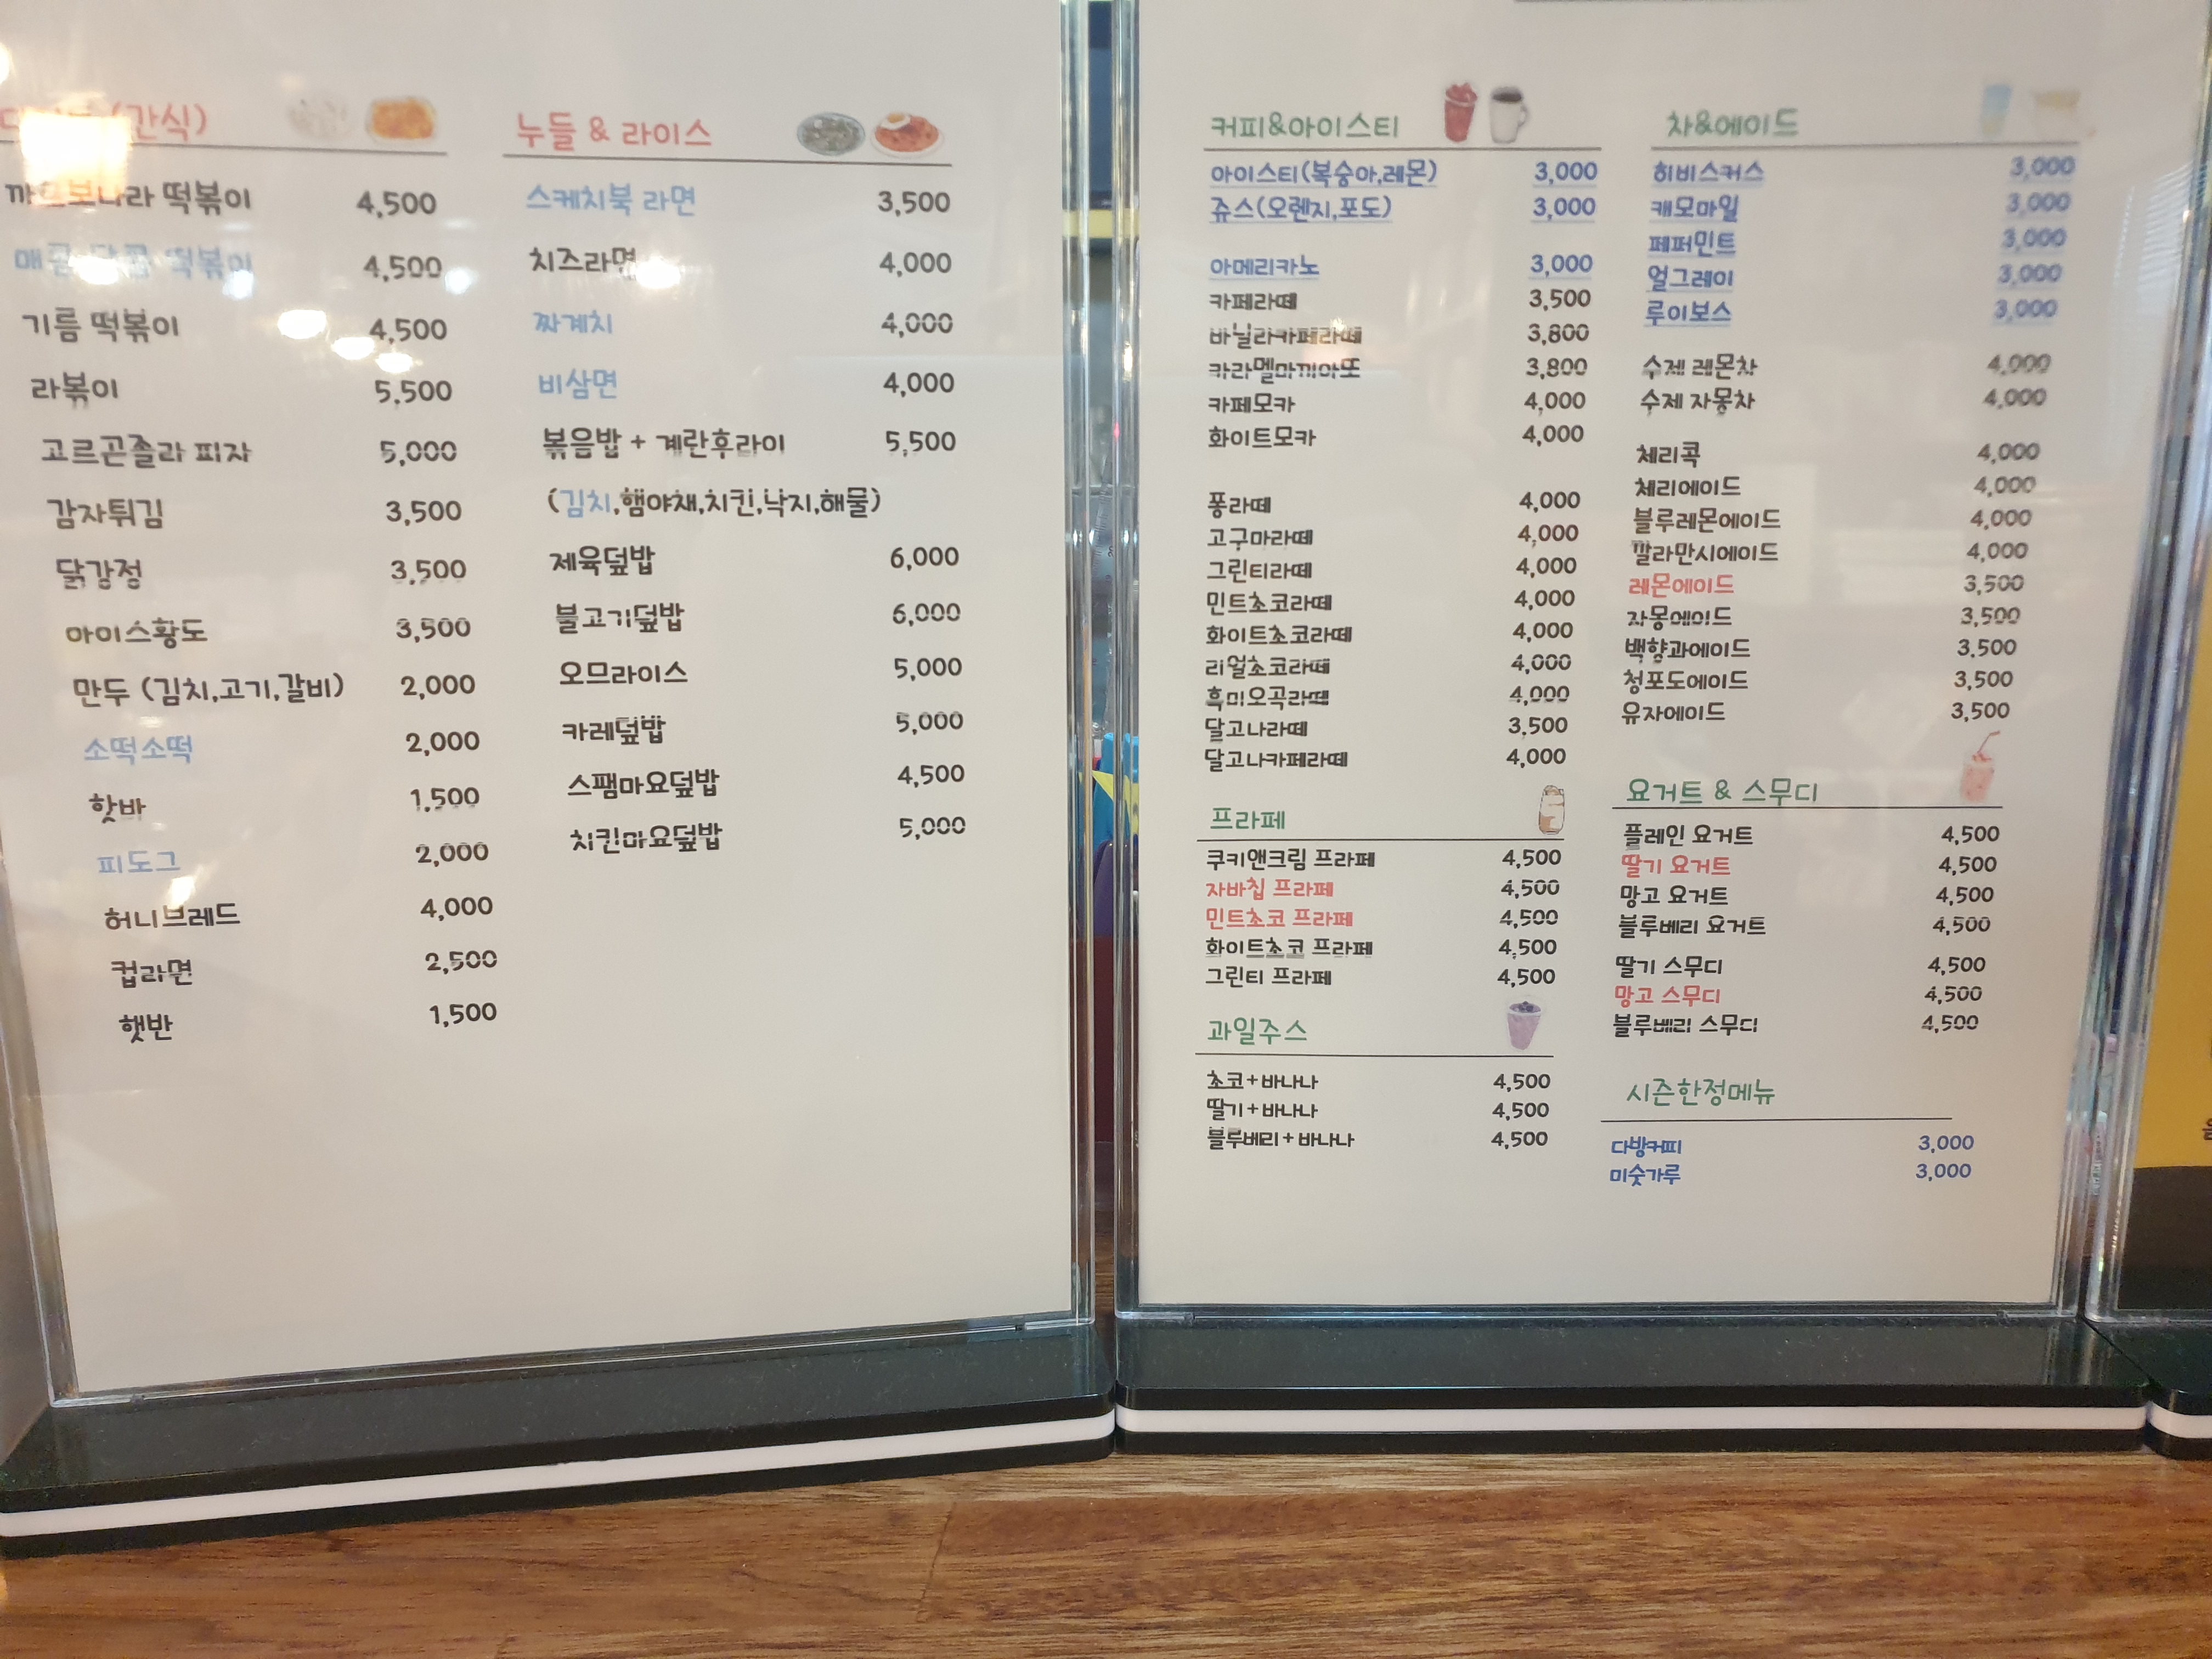 (간식)
까르보나라 떡볶이 4,500
매콤 달콤 떡볶이 4,500
기름 떡볶이 4,500
라볶이 5,500
고르곤졸라 피자 5,000
감자튀김 3,500
닭강정 3,500
아이스황도 3,500
만두 (김치,고기,갈비) 2,000
소떡소떡 2,000
핫바 1,500
피도그 2,000
허니브레드 4,000
컵라면 2,500
햇반 1,500
누들 & 라이스
스케치북 라면 3,500
치즈라면 4,000
짜계치 4,000
비삼면 4,000
볶음밥 + 계란후라이 5,500
(김치,햄야채,치킨,낙지,해물)
제육덮밥 6,000
불고기덮밥 6,000
오므라이스 5,000
카레덮밥 5,000
스팸마요덮밥 4,500
치킨마요덮밥 5,000
커피&아이스티
아이스티(복숭아,레몬) 3,000
쥬스(오렌지,포도) 3,000
아메리카노 3,000
카페라떼 3,500
바닐라카페라떼 3,800
카라멜마끼아또 3,800
카페모카 4,000
화이트모카 4,000
퐁라떼 4,000
고구마라떼 4,000
그린티라떼 4,000
민트초코라떼 4,000
화이트초코라떼 4,000
리얼초코라떼 4,000
흑미오곡라떼 4,000
달고나라떼 3,500
달고나카페라떼 4,000
프라페
쿠키앤크림 프라페 4,500
자바칩 프라페 4,500
민트초코 프라페 4,500
화이트초코 프라페 4,500
그린티 프라페 4,500
과일주스
초코+바나나 4,500
딸기+바나나 4,500
블루베리+바나나 4,500
차&에이드
히비스커스 3,000
캐모마일 3,000
페퍼민트 3,000
얼그레이 3,000
루이보스 3,000
수제 레몬차 4,000
수제 자몽차 4,000
체리콕 4,000
체리에이드 4,000
블루레몬에이드 4,000
깔라만시에이드 4,000
레몬에이드 3,500
자몽에이드 3,500
백향과에이드 3,500
청포도에이드 3,500
유자에이드 3,500
요거트 & 스무디
플레인 요거트 4,500
딸기 요거트 4,500
망고 요거트 4,500
블루베리 요거트 4,500
딸기 스무디 4,500
망고 스무디 4,500
블루베리 스무디 4,500
시즌한정메뉴
다방커피 3,000
미숫가루 3,000